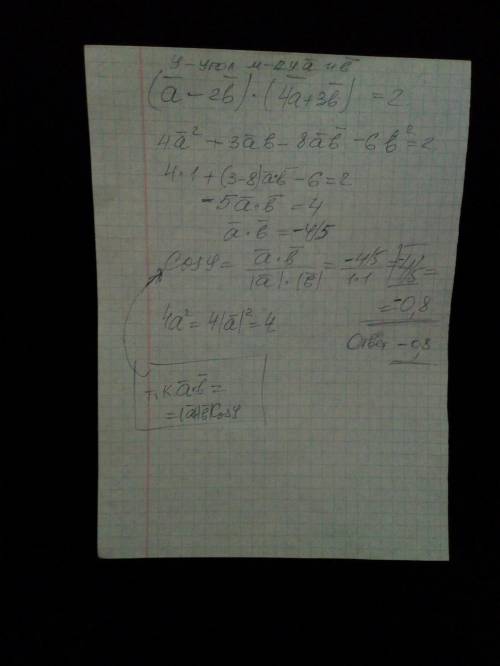 φ-угол м-ду a̅ и b̅
(a̅ - 2b̅) · (4a̅+3b̅) = 2
4a̅² + 3a̅b̅ - 8a̅b̅ - 6b̅² = 2
4·1 + (3-8)a̅·b̅ - 6 = 2
-5a̅·b̅ = 4
a̅·b̅ = -4/5
Cosφ = a̅·b̅ / |a̅|·|b̅| = -4/5 / 1·1 = -4/5 =
= -0,8
4a̅² = 4|a̅|² = 4
Ответ -0,8
т.к a̅·b̅ =
= |a̅||b̅|Cosφ